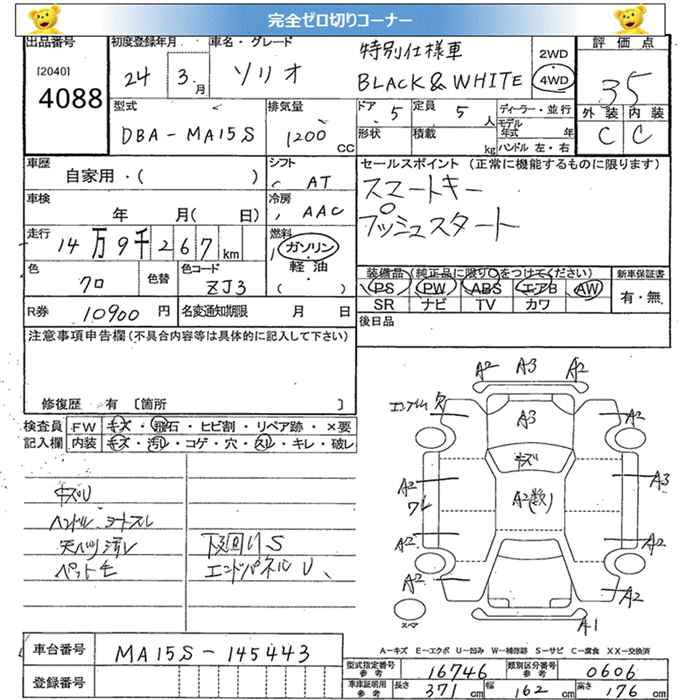 完全ゼロ切りコーナー
出品番号
[2040]
4088
初度登録年月
24年 3月
車名・グレード
ソリオ
特別仕様車
BLACK & WHITE
2WD
4WD
評価点
3.5
外装 内装
C C
型式
DBA-MA15S
排気量
1200 CC
ドア 5
定員 5人
形状
積載 kg
ディーラー・並行
モデル年式 年
ハンドル 左・右
車歴
自家用・( )
シフト
AT
車検
年 月( 日)
冷房
AAC
走行
14万9千267km
燃料
ガソリン
軽油
( )
色
クロ
色替
色コード
ZJ3
R券 10900円
名変通知期限 月 日
セールスポイント (正常に機能するものに限ります)
スマートキー
プッシュスタート
装備品(純正品に限り○をつけてください)
PS PW ABS エアB AW
SR ナビ TV カワ
新車保証書
有・無
後日品
注意事項申告欄(不具合内容等は具体的に記入して下さい)
修復歴 有 〔箇所 〕
検査員記入欄
FW キズ・飛石・ヒビ割・リペア跡・×要
内装 キズ・汚レ・コゲ・穴・スレ・キレ・破レ
キズU
ハンドル、シートスレ
天ハリ汚レ
ペット毛
下回りS
エンドパネルU、
A2 A3 A2
エンブレム欠
A3
A2
キズ
A2
ワレ
A2(数)
A3
A2
A2
A2
A2
スペア
A1
A-キズ E-エクボ U-凹み W-補修跡 S-サビ C-腐食 XX-交換済
車台番号
MA15S-145443
登録番号
型式指定番号参考
16746
類別区分番号参考
0606
車庫証明用参考
長さ 371cm
幅 162cm
高さ 176cm